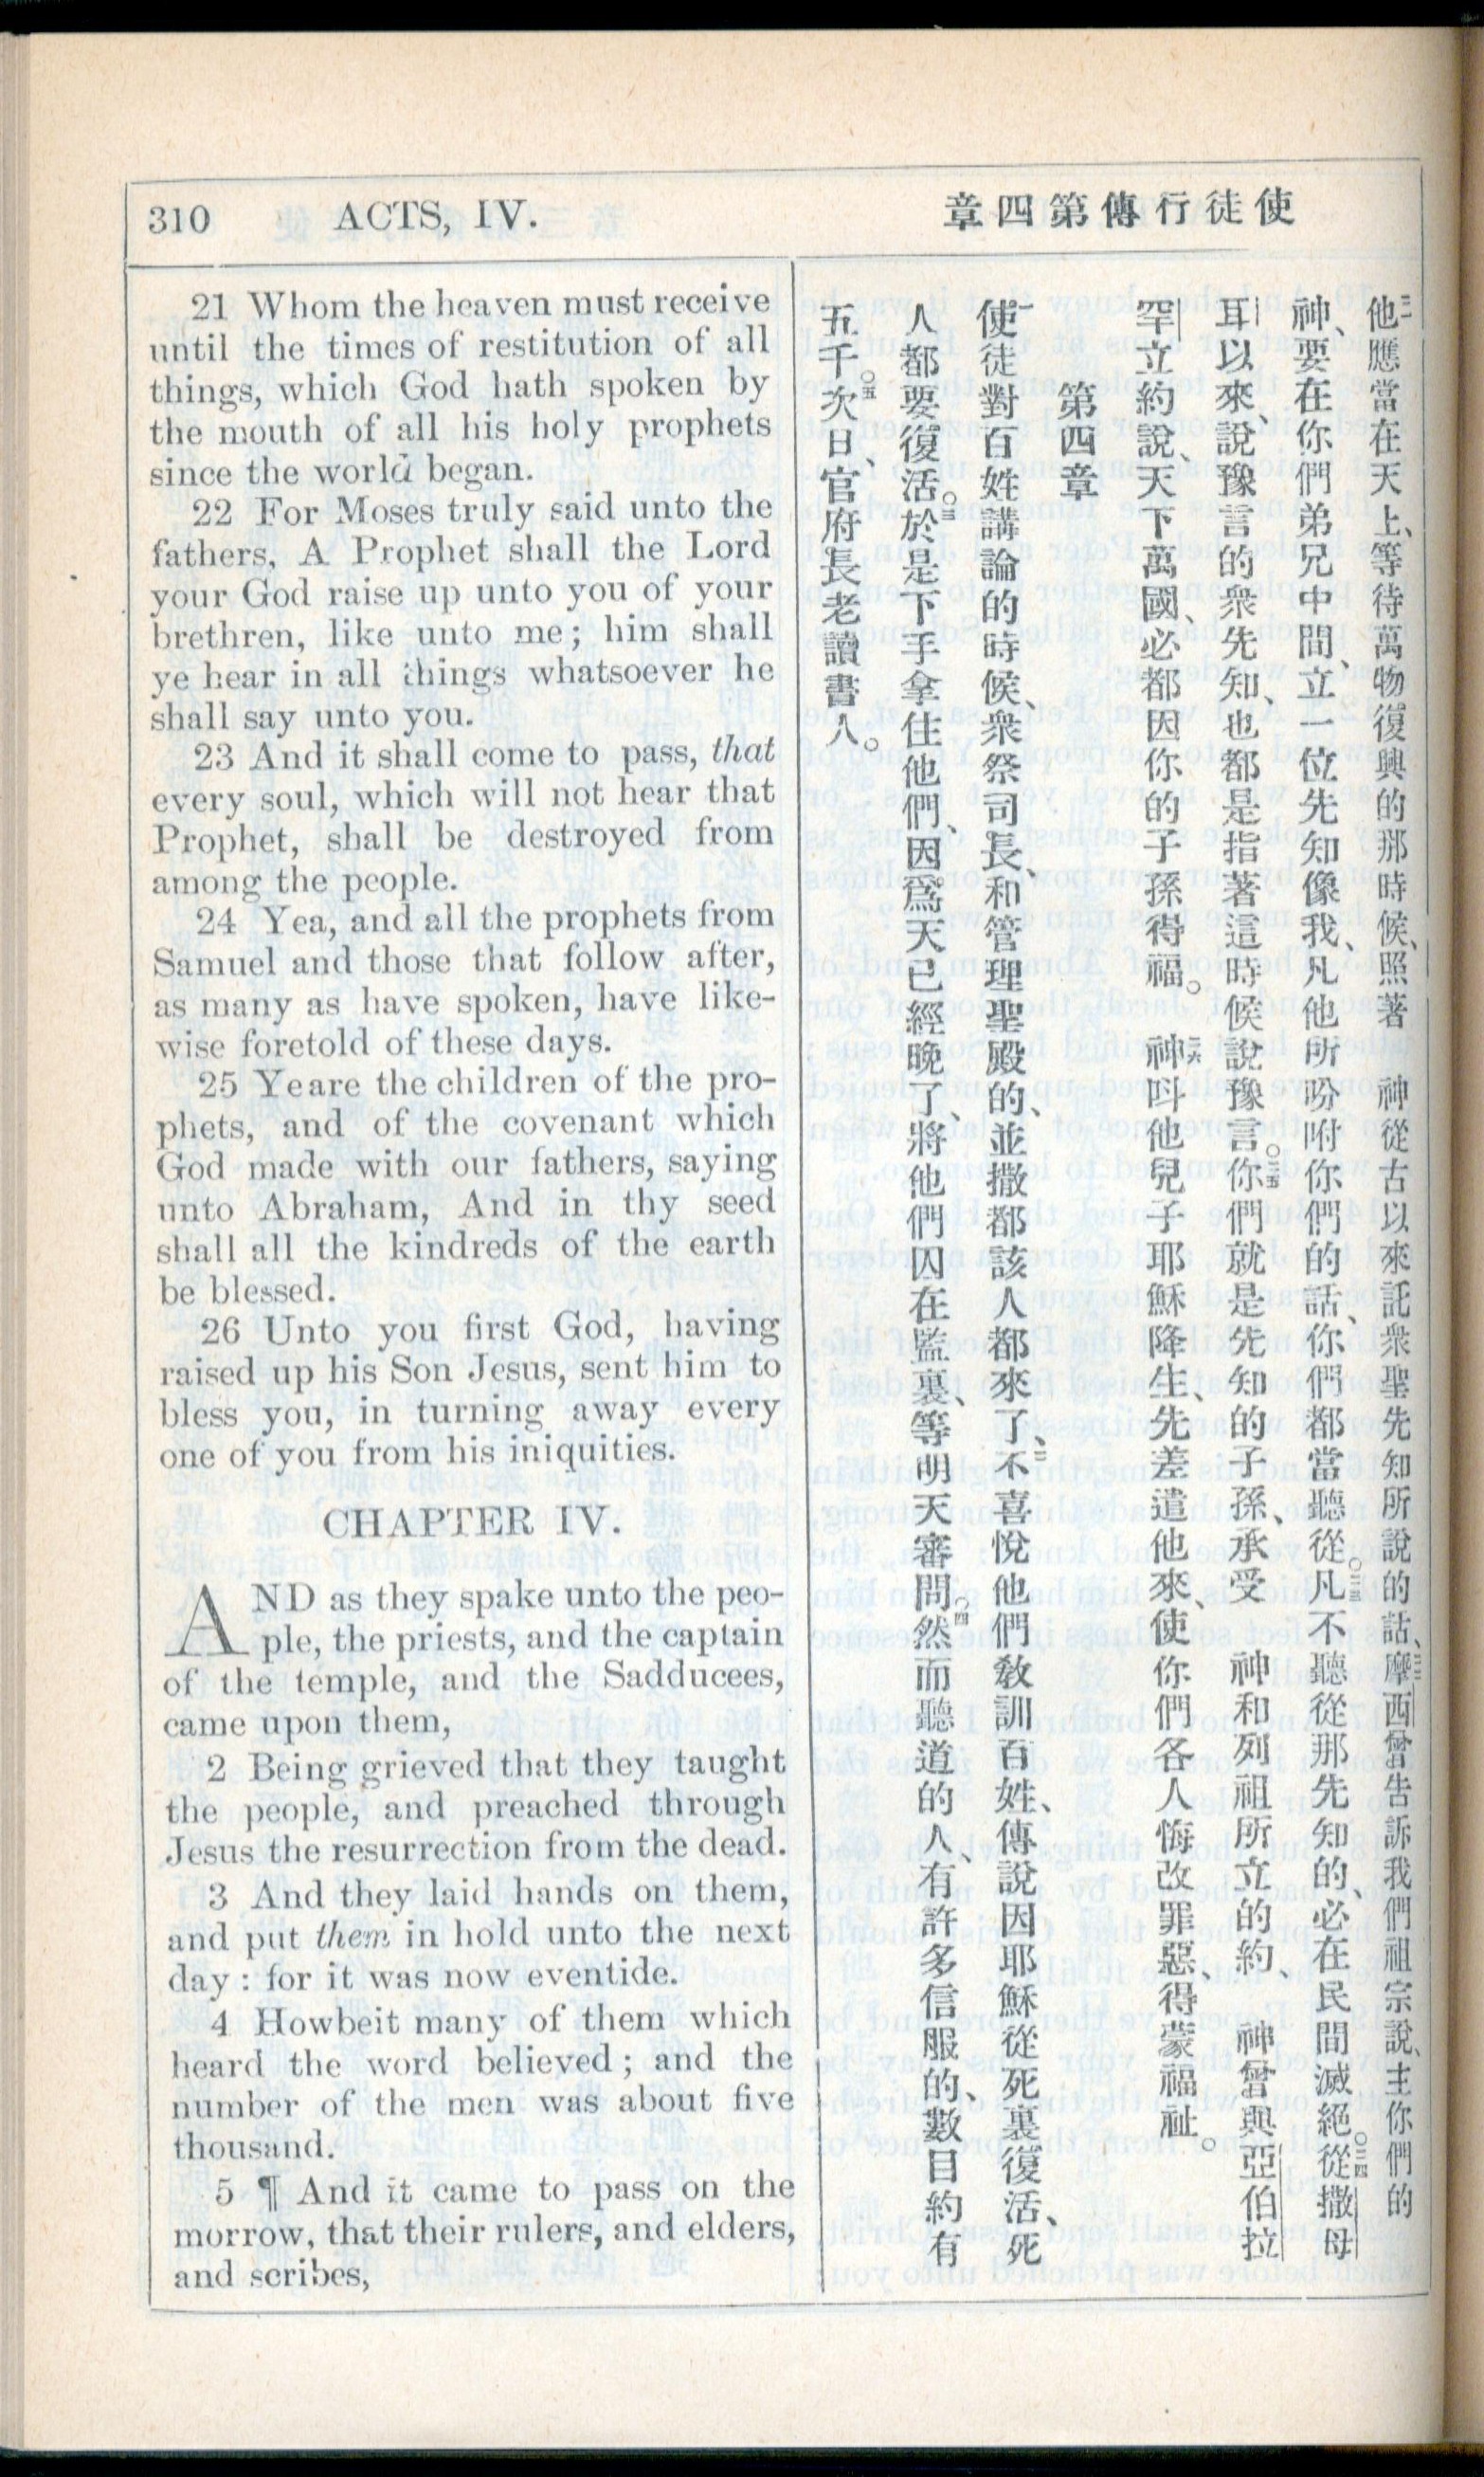 310 ACTS, IV.
章四第傳行徒使
21 Whom the heaven must receive
until the times of restitution of all
things, which God hath spoken by
the mouth of all his holy prophets
since the world began.
22 For Moses truly said unto the
fathers, A Prophet shall the Lord
your God raise up unto you of your
brethren, like unto me; him shall
ye hear in all things whatsoever he
shall say unto you.
23 And it shall come to pass, that
every soul, which will not hear that
Prophet, shall be destroyed from
among the people.
24 Yea, and all the prophets from
Samuel and those that follow after,
as many as have spoken, have like-
wise foretold of these days.
25 Ye are the children of the pro-
phets, and of the covenant which
God made with our fathers, saying
unto Abraham, And in thy seed
shall all the kindreds of the earth
be blessed.
26 Unto you first God, having
raised up his Son Jesus, sent him to
bless you, in turning away every
one of you from his iniquities.
CHAPTER IV.
AND as they spake unto the peo-
ple, the priests, and the captain
of the temple, and the Sadducees,
came upon them,
2 Being grieved that they taught
the people, and preached through
Jesus the resurrection from the dead.
3 And they laid hands on them,
and put them in hold unto the next
day: for it was now eventide.
4 Howbeit many of them which
heard the word believed; and the
number of the men was about five
thousand.
5 ¶ And it came to pass on the
morrow, that their rulers, and elders,
and scribes,
二一他應當在天上、等待萬物復興的那時候、照著 神從古以來託衆聖先知所說的話、二二摩西曾告訴我們祖宗說、主你們的
神、要在你們弟兄中間、立一位先知像我、凡他所吩咐你們的話、你們都當聽從。○二三凡不聽從那先知的、必在民間滅絕。○二四從撒母
耳以來、說豫言的衆先知、也都是指著這時候說豫言。○二五你們就是先知的子孫、承受 神和列祖所立的約、 神曾與亞伯拉
罕立約說、天下萬國、必都因你的子孫得福。 二六神呌他兒子耶穌降生、先差遣他來、使你們各人悔改罪惡、得蒙福祉。
第四章
一使徒對百姓講論的時候、衆祭司長、和管理聖殿的、並撒都該人都來了、二不喜悅他們敎訓百姓、傳說因耶穌從死裏復活、死
人都要復活。○三於是下手拿住他們、因爲天已經晚了、將他們囚在監裏、等明天審問。○四然而聽道的人、有許多信服的、數目約有
五千。○五次日、官府長老讀書人。